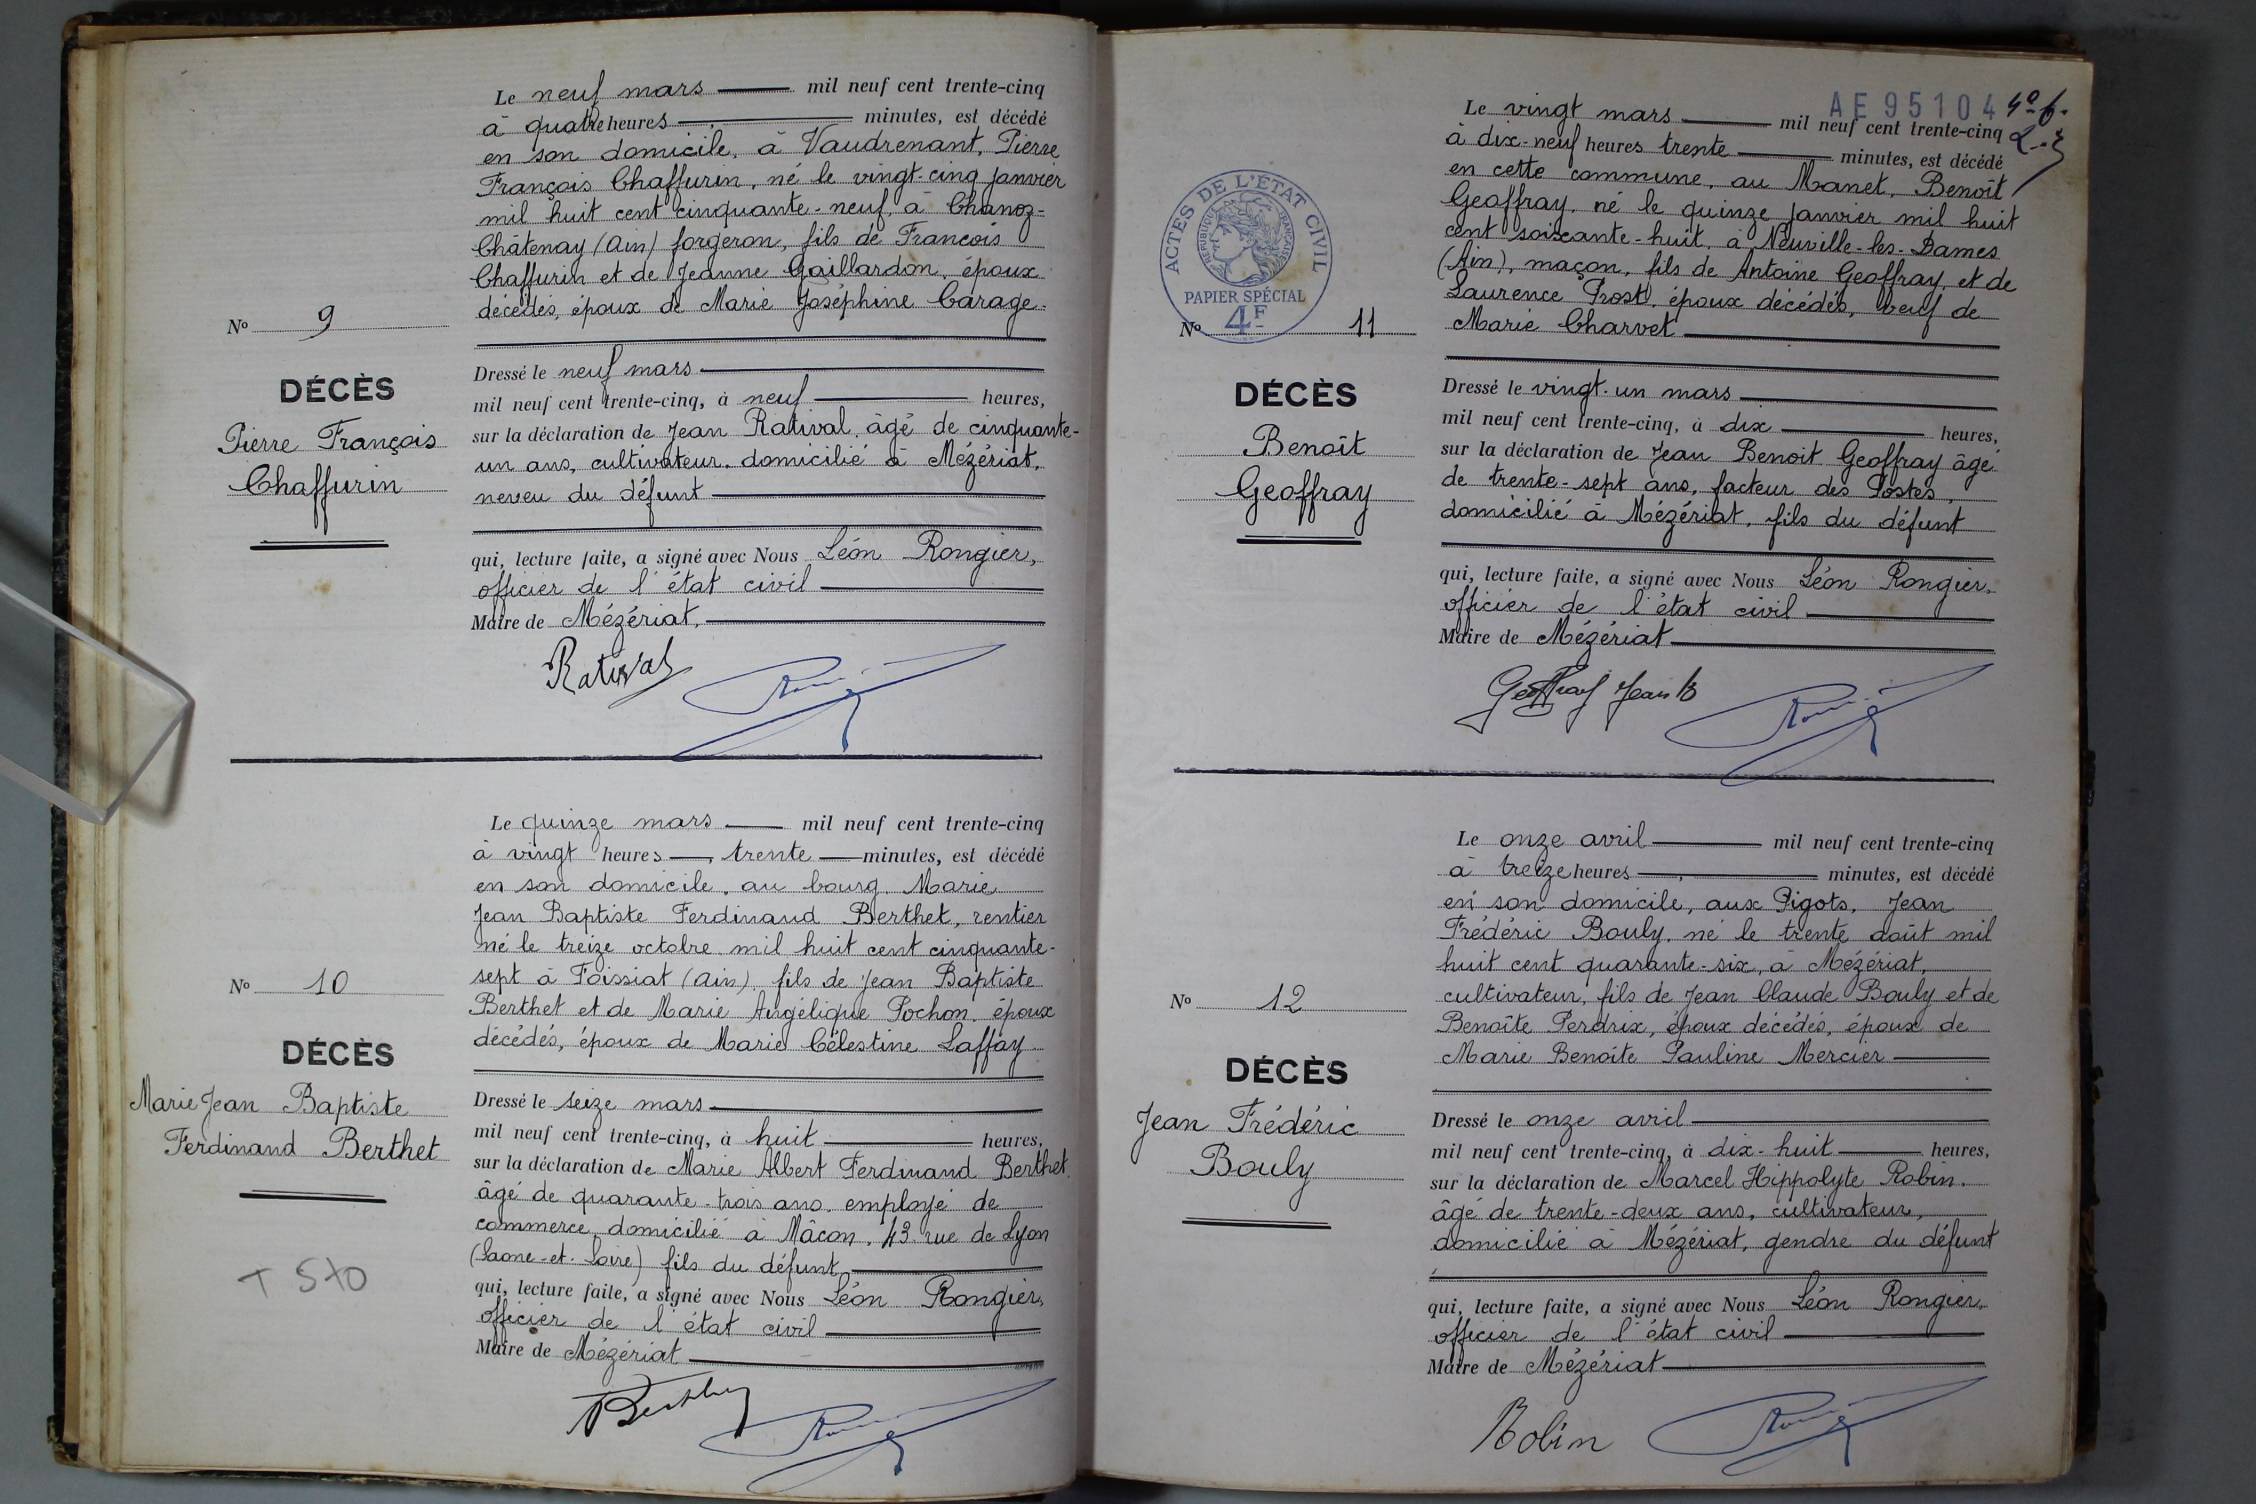 Le neuf mars mil neuf cent trente-cinq
à quatre heures minutes, est décédé
en son domicile, à Vaudrenant, Pierre
François Chaffurin, né le vingt-cinq janvier
mil huit cent cinquante-neuf, à Chanoz-
Châtenay (Ain) forgeron, fils de François
Chaffurin et de Jeanne Gaillardon, époux
décédés, époux de Marie Joséphine Carage.
No 9
DÉCÈS
Pierre François
Chaffurin
Dressé le neuf mars
mil neuf cent trente-cinq, à neuf heures,
sur la déclaration de Jean Ratival, âgé de cinquante-
un ans, cultivateur, domicilié à Mézériat,
neveu du défunt
qui, lecture faite, a signé avec Nous Léon Rongier,
officier de l'état civil
Maire de Mézériat.
Ratival
Le quinze mars mil neuf cent trente-cinq
à vingt heures, trente minutes, est décédé
en son domicile, au bourg, Marie
Jean Baptiste Ferdinand Berthet, rentier
né le treize octobre mil huit cent cinquante-
sept à Foissiat (Ain), fils de Jean Baptiste
Berthet et de Marie Angélique Pochon, époux
décédés, époux de Marie Célestine Laffay
No 10
DÉCÈS
Marie Jean Baptiste
Ferdinand Berthet
T 570
Dressé le seize mars
mil neuf cent trente-cinq, à huit heures,
sur la déclaration de Marie Albert Ferdinand Berthet,
âgé de quarante-trois ans, employé de
commerce, domicilié à Mâcon, 43 rue de Lyon
(Saone-et-Loire) fils du défunt,
qui, lecture faite, a signé avec Nous Léon Rongier,
officier de l'état civil
Maire de Mézériat
Berthet
AE95104
Le vingt mars mil neuf cent trente-cinq
à dix-neuf heures trente minutes, est décédé
en cette commune, au Manet, Benoît
Geoffray, né le quinze janvier mil huit
cent soixante-huit, à Neuville-les-Dames
(Ain), maçon, fils de Antoine Geoffray, et de
Laurence Prost, époux décédés, veuf de
Marie Charvet
ACTES DE L'ÉTAT CIVIL
RÉPUBLIQUE FRANÇAISE
PAPIER SPÉCIAL
4F
No 11
DÉCÈS
Benoît
Geoffray
Dressé le vingt-un mars
mil neuf cent trente-cinq, à dix heures,
sur la déclaration de Jean Benoit Geoffray âgé
de trente-sept ans, facteur des Postes,
domicilié à Mézériat, fils du défunt
qui, lecture faite, a signé avec Nous Léon Rongier,
officier de l'état civil
Maire de Mézériat
Geoffray Jean B
Le onze avril mil neuf cent trente-cinq
à treize heures minutes, est décédé
en son domicile, aux Pigots, Jean
Frédéric Bouly, né le trente août mil
huit cent quarante-six, à Mézériat,
cultivateur, fils de Jean Claude Bouly et de
Benoîte Perdrix, époux décédés, époux de
Marie Benoîte Pauline Mercier
No 12
DÉCÈS
Jean Frédéric
Bouly
Dressé le onze avril
mil neuf cent trente-cinq, à dix-huit heures,
sur la déclaration de Marcel Hippolyte Robin,
âgé de trente-deux ans, cultivateur,
domicilié à Mézériat, gendre du défunt
qui, lecture faite, a signé avec Nous Léon Rongier,
officier de l'état civil
Maire de Mézériat
Robin